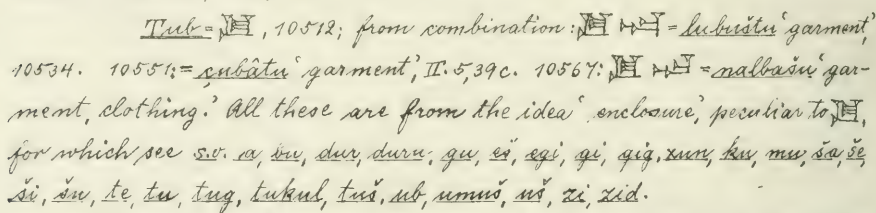 Tub = 𒌆, 10512; from combination: 𒌆 = lubuštu ‘garment,’
10534. 10551: = çubâtu ‘garment’, II. 5,39c. 10567: 𒌆 = nalbašu ‘gar-
ment, clothing.’ All these are from the idea ‘enclosure,’ peculiar to 𒌆,
for which see s.v. a, bu, dur, duru, gu, eš, egi, gi, gig, xun, ku, mu, ša, še,
ši, šu, te, tu, tug, tukul, tuš, ub, umuš, uš, zi, zid.